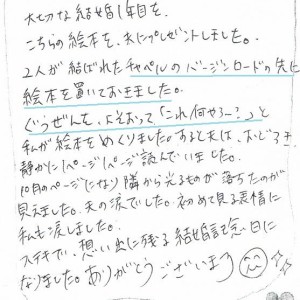 大切な結婚1年目を、
こちらの絵本を、夫にプレゼントしました。
2人が結ばれたチャペルのバージンロードの先に
絵本を置いておきました。
ぐうぜんを、よそおって「これ何やろー?」と
私が絵本をめくりました。すると夫は、おどろき
静かに1ページ1ページ読んでいました。
10月のページになり隣から光るものが落ちたのが
見えました。夫の涙でした。初めて見る表情に
私も涙しました。
ステキで、想い出に残る結婚記念日に
なりました。ありがとうございます